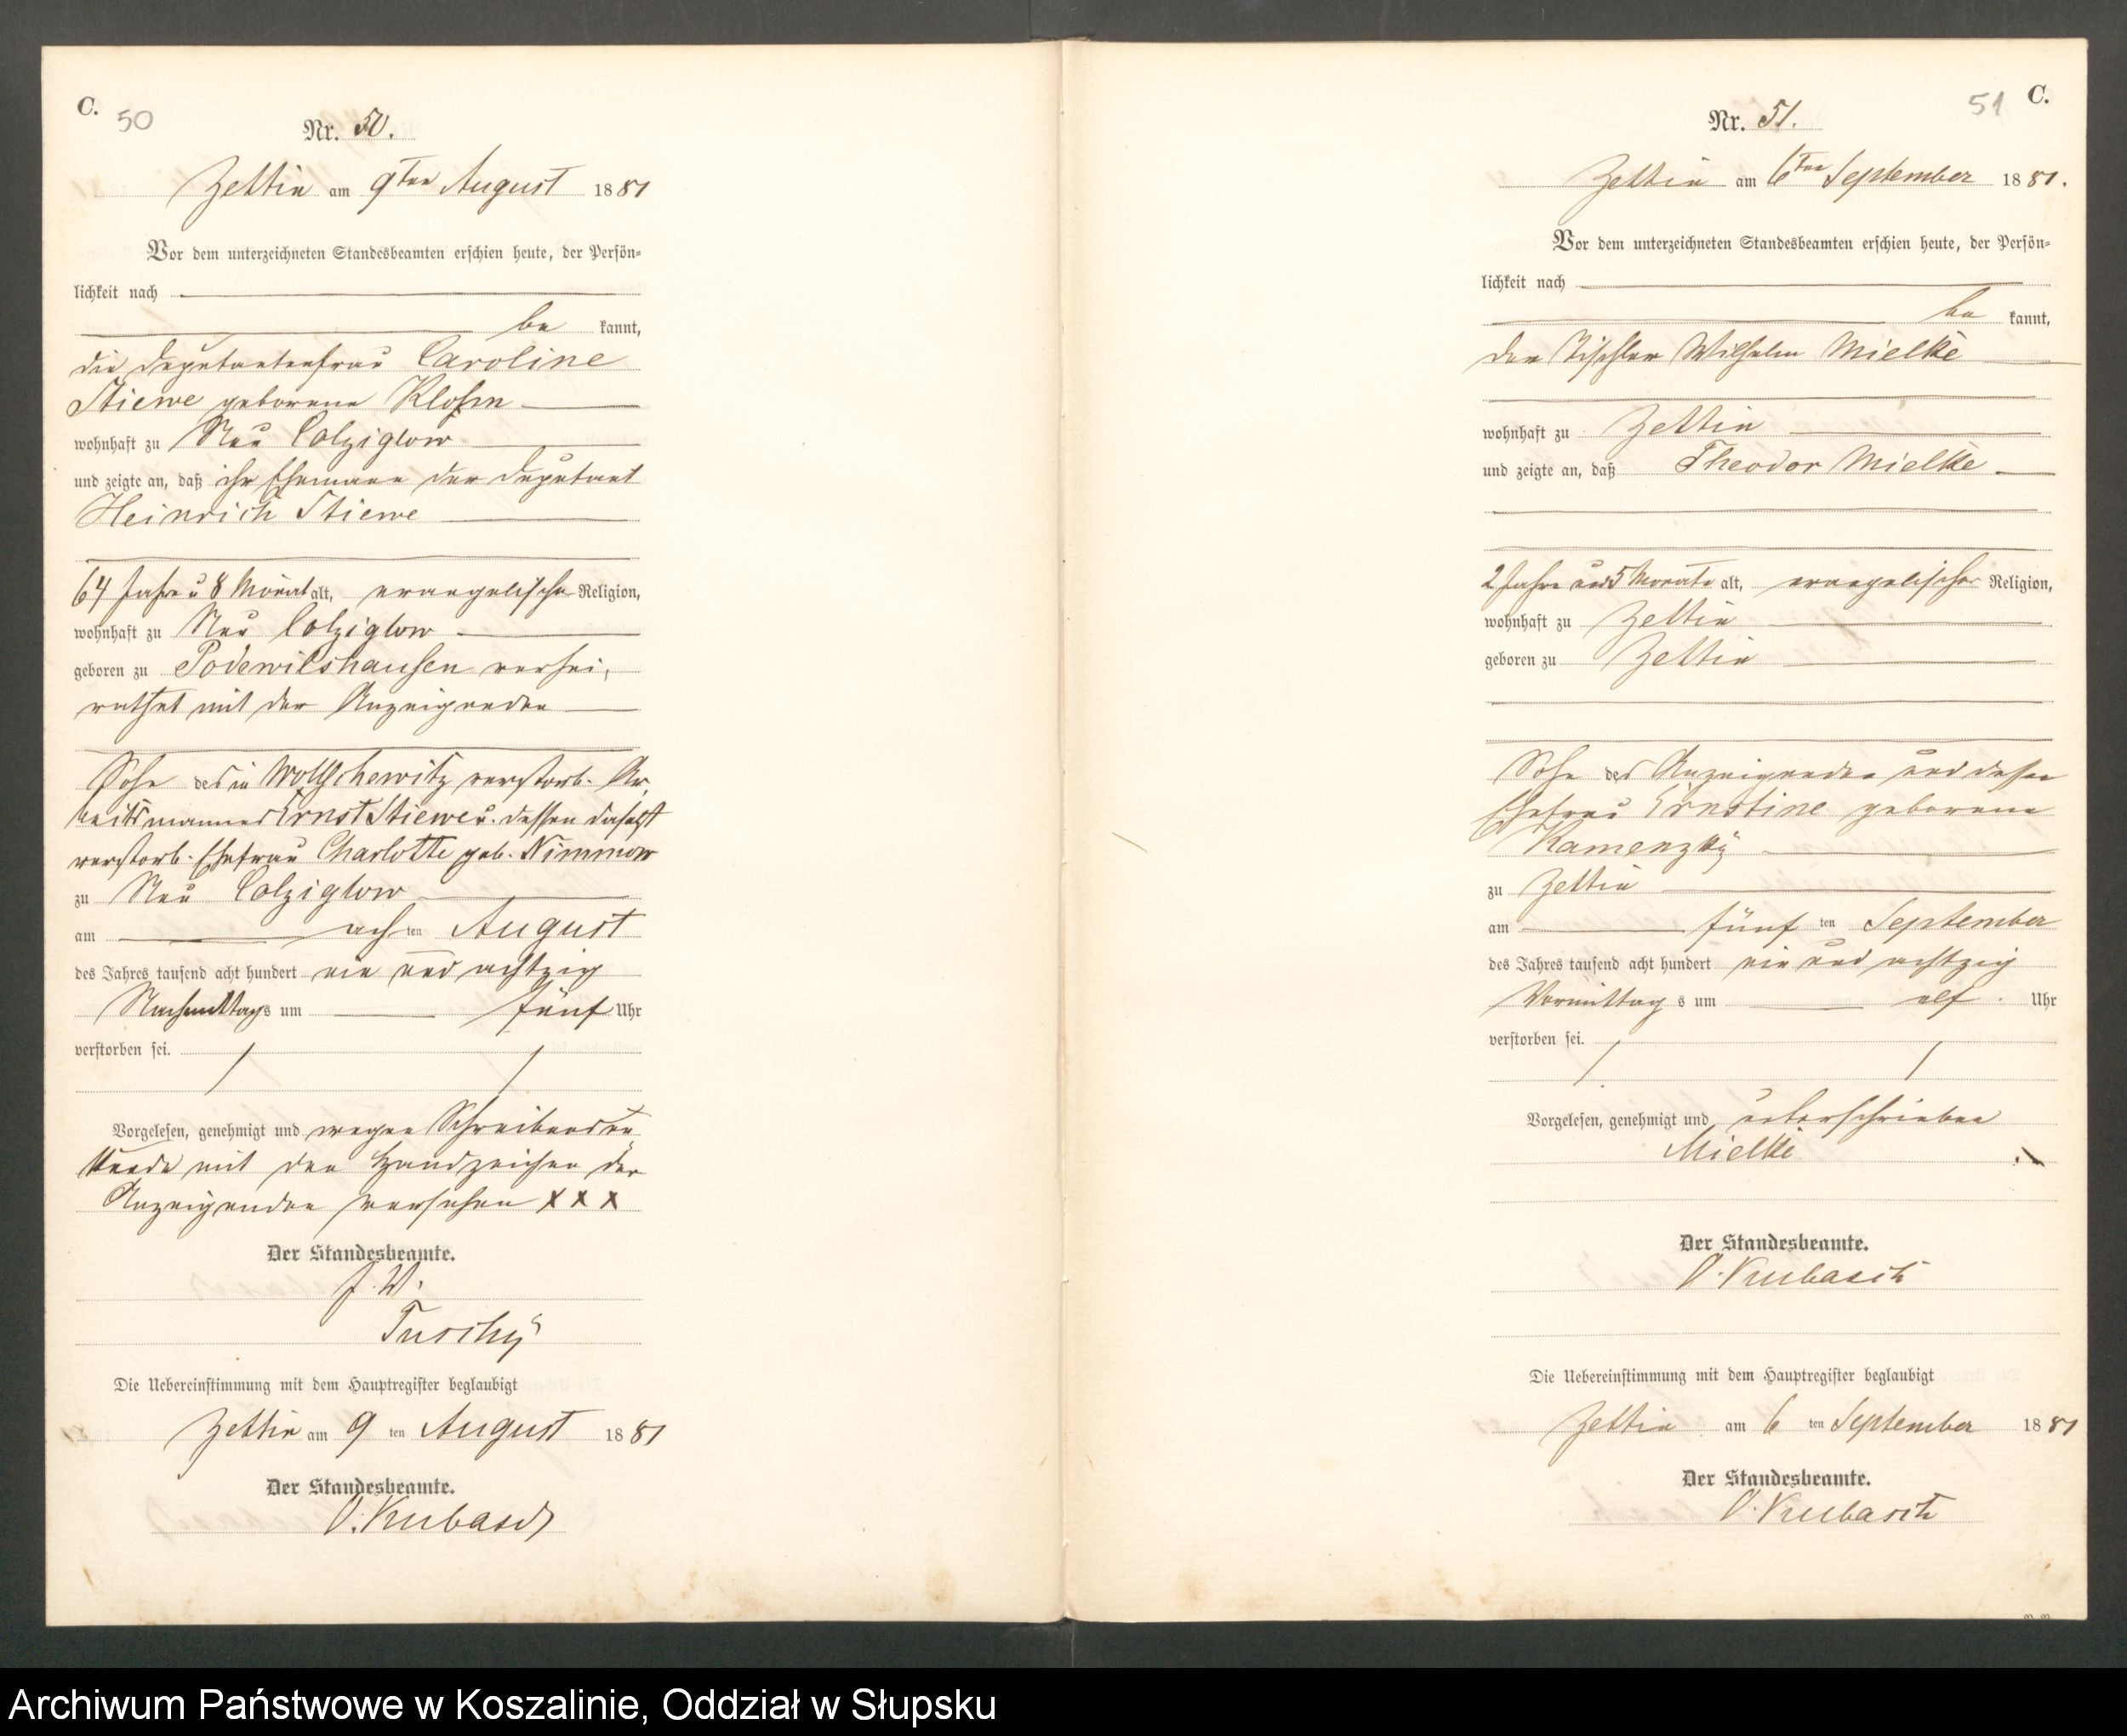 C. 50
Nr. 50.
Zettin am 9ten August 1881
Vor dem unterzeichneten Standesbeamten erschien heute, der Persön-
lichkeit nach
be kannt,
die Deputantenfrau Caroline
Stiewe geborene
wohnhaft zu Neu Colziglow
und zeigte an, daß ihr Ehemann der Deputant
Heinrich Stiewe
64 Jahr u 8 Monat alt, evangelischer Religion,
wohnhaft zu Neu Colziglow
geboren zu Podewilshausen verhei,
rathet mit der Anzeigenden
Sohn des in verstorb. Ar,
beitsmannes Ernst Stiewe u. dessen daselbst
verstorb. Ehefrau Charlotte geb. Nimmow
zu Neu Colziglow
am achten August
des Jahres tausend acht hundert ein und achtzig
Nachmittags um fünf Uhr
verstorben sei.
Vorgelesen, genehmigt und wegen Schreibens un
kunde mit den Handzeichen der
Anzeigenden versehen x x x
Der Standesbeamte.
J. V.
Tuschÿ
Die Uebereinstimmung mit dem Hauptregister beglaubigt
Zettin am 9 ten August 1881
Der Standesbeamte.
O. Kubasch
51 C.
Nr. 51.
Zettin am 6ten September 1881.
Vor dem unterzeichneten Standesbeamten erschien heute, der Persön-
lichkeit nach
be kannt,
der Tischler Wilhelm Mielke
wohnhaft zu Zettin
und zeigte an, daß Theodor Mielke
2 Jahre und 5 Monate alt, evangelischer Religion,
wohnhaft zu Zettin
geboren zu Zettin
Sohn des Anzeigenden und dessen
Ehefrau Ernstine geborene
Kamenzkÿ
zu Zettin
am fünf ten September
des Jahres tausend acht hundert ein und achtzig
Vormittag s um elf Uhr
verstorben sei.
Vorgelesen, genehmigt und unterschrieben
Mielke
Der Standesbeamte.
O. Kubasch
Die Uebereinstimmung mit dem Hauptregister beglaubigt
Zettin am 6 ten September 1881
Der Standesbeamte.
O. Kubasch
Archiwum Państwowe w Koszalinie, Oddział w Słupsku